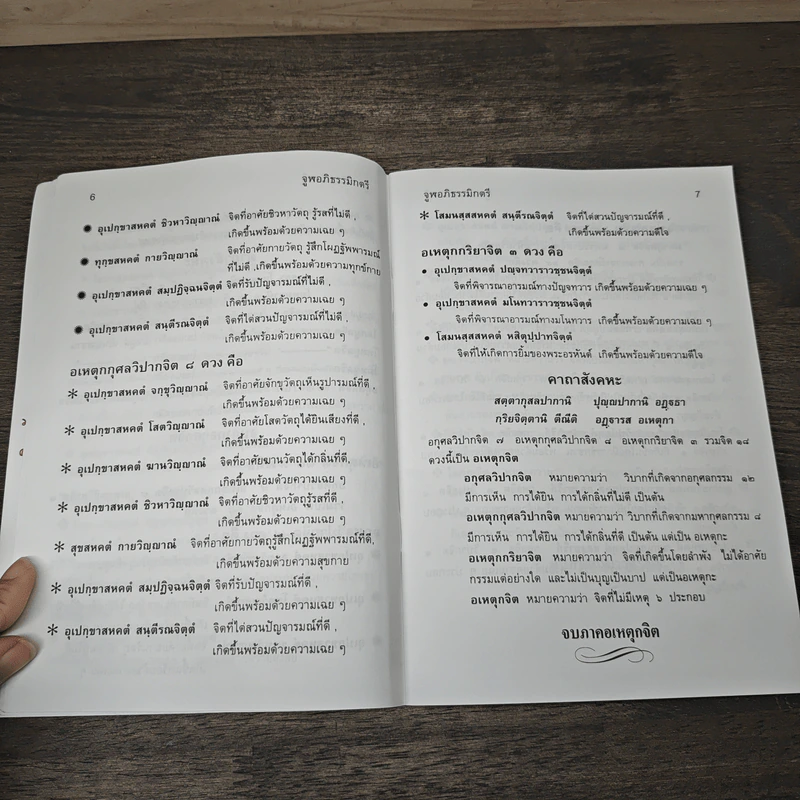 6
จูพอภิธรรมิกตรี
● อุเปกฺขาสหคตํ ชิวหาวิญฺญาณํ จิตที่อาศัยชิวหาวัตถุ รู้รสที่ไม่ดี ,
เกิดขึ้นพร้อมด้วยความเฉย ๆ
● ทุกฺขสหคตํ กายวิญฺญาณํ จิตที่อาศัยกายวัตถุ รู้สึกโผฏฐัพพารมณ์
ที่ไม่ดี ,เกิดขึ้นพร้อมด้วยความทุกข์กาย
● อุเปกฺขาสหคตํ สมฺปฏิจฺฉนจิตฺตํ จิตที่รับปัญจารมณ์ที่ไม่ดี ,
เกิดขึ้นพร้อมด้วยความเฉย ๆ
● อุเปกฺขาสหคตํ สนฺตีรณจิตฺตํ จิตที่ไต่สวนปัญจารมณ์ที่ไม่ดี ,
เกิดขึ้นพร้อมด้วยความเฉย ๆ
อเหตุกกุศลวิปากจิต ๘ ดวง คือ
* อุเปกฺขาสหคตํ จกฺขุวิญฺญาณํ จิตที่อาศัยจักขุวัตถุเห็นรูปารมณ์ที่ดี ,
เกิดขึ้นพร้อมด้วยความเฉย ๆ
* อุเปกฺขาสหคตํ โสตวิญฺญาณํ จิตที่อาศัยโสตวัตถุได้ยินเสียงที่ดี ,
เกิดขึ้นพร้อมด้วยความเฉย ๆ
* อุเปกฺขาสหคตํ ฆานวิญฺญาณํ จิตที่อาศัยฆานวัตถุได้กลิ่นที่ดี ,
เกิดขึ้นพร้อมด้วยความเฉย ๆ
* อุเปกฺขาสหคตํ ชิวหาวิญฺญาณํ จิตที่อาศัยชิวหาวัตถุรู้รสที่ดี ,
เกิดขึ้นพร้อมด้วยความเฉย ๆ
* สุขสหคตํ กายวิญฺญาณํ จิตที่อาศัยกายวัตถุรู้สึกโผฏฐัพพารมณ์ที่ดี,
เกิดขึ้นพร้อมด้วยความสุขกาย
* อุเปกฺขาสหคตํ สมฺปฏิจฺฉนจิตฺตํ จิตที่รับปัญจารมณ์ที่ดี ,
เกิดขึ้นพร้อมด้วยความเฉย ๆ
* อุเปกฺขาสหคตํ สนฺตีรณจิตฺตํ จิตที่ไต่สวนปัญจารมณ์ที่ดี ,
เกิดขึ้นพร้อมด้วยความเฉย ๆ
จูพอภิธรรมิกตรี
7
* โสมนสฺสสหคตํ สนฺตีรณจิตฺตํ จิตที่ไต่สวนปัญจารมณ์ที่ดี ,
เกิดขึ้นพร้อมด้วยความดีใจ
อเหตุกกริยาจิต ๓ ดวง คือ
• อุเปกฺขาสหคตํ ปญฺจทวาราวชฺชนจิตฺตํ
จิตที่พิจารณาอารมณ์ทางปัญจทวาร เกิดขึ้นพร้อมด้วยความเฉย ๆ
• อุเปกฺขาสหคตํ มโนทวาราวชฺชนจิตฺตํ
จิตที่พิจารณาอารมณ์ทางมโนทวาร เกิดขึ้นพร้อมด้วยความเฉย ๆ
• โสมนสฺสสหคตํ หสิตุปฺปาทจิตฺตํ
จิตที่ให้เกิดการยิ้มของพระอรหันต์ เกิดขึ้นพร้อมด้วยความดีใจ
คาถาสังคหะ
สตฺตากุสลปากานิ ปุญฺญปากานิ อฏฺฐธา
กฺริยจิตฺตานิ ตีณีติ อฏฺฐารส อเหตุกา
อกุศลวิปากจิต ๗ อเหตุกกุศลวิปากจิต ๘ อเหตุกกริยาจิต ๓ รวมจิต ๑๘
ดวงนี้เป็น อเหตุกจิต
อกุศลวิปากจิต หมายความว่า วิบากที่เกิดจากอกุศลกรรม ๑๒
มีการเห็น การได้ยิน การได้กลิ่นที่ไม่ดี เป็นต้น
อเหตุกกุศลวิปากจิต หมายความว่า วิบากที่เกิดจากมหากุศลกรรม ๘
มีการเห็น การได้ยิน การได้กลิ่นที่ดี เป็นต้น แต่เป็น อเหตุกะ
อเหตุกกริยาจิต หมายความว่า จิตที่เกิดขึ้นโดยลำพัง ไม่ได้อาศัย
กรรมแต่อย่างใด และไม่เป็นบุญเป็นบาป แต่เป็นอเหตุกะ
อเหตุกจิต หมายความว่า จิตที่ไม่มีเหตุ ๖ ประกอบ
จบภาคอเหตุกจิต